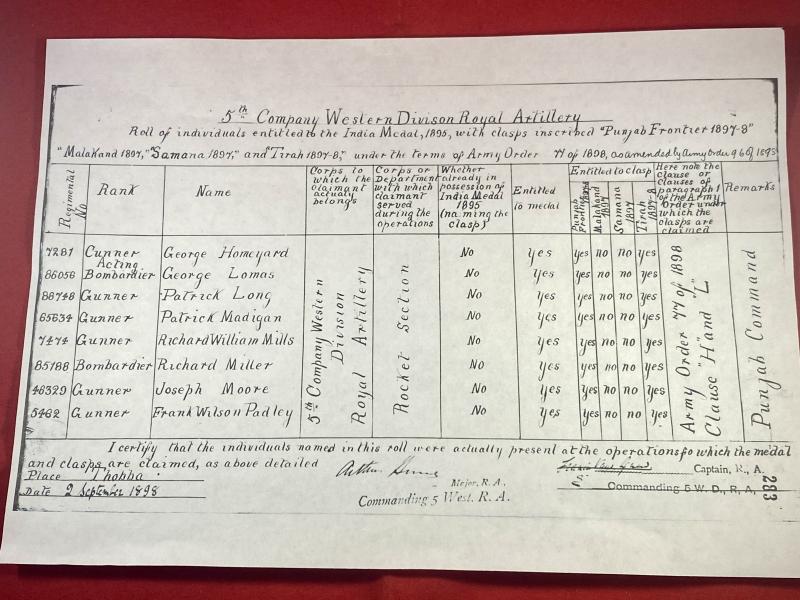 5th Company Western Divison Royal Artillery
Roll of individuals entitled to the India Medal, 1895, with clasps inscribed "Punjab Frontier 1897-8"
"Malakand 1897," "Samana 1897," and "Tirah 1897-8," under the terms of Army Order 77 of 1898, as amended by Army Order 96 of 1898
Regimental No
Rank
Name
Corps to which the claimant actually belongs
Corps or Department with which claimant served during the operations
Whether already in possession of India Medal 1895 (naming the clasp)
Entitled to medal
Entitled to clasp
Punjab Frontier 1897-8
Malakand 1897
Samana 1897
Tirah 1897-8
Here note the clause or clauses of paragraph 1 of the Army Order under which the clasps are claimed
Remarks
7281 Gunner George Homeyard No Yes yes no no yes
86056 Acting Bombardier George Lomas No Yes yes no no yes
88748 Gunner Patrick Long No Yes yes no no yes
65634 Gunner Patrick Madigan No Yes yes no no yes
7474 Gunner Richard William Mills No Yes yes no no yes
85188 Bombardier Richard Miller No Yes yes no no yes
46329 Gunner Joseph Moore No Yes yes no no yes
5462 Gunner Frank Wilson Padley No Yes yes no no yes
5th Company Western Division Royal Artillery
Rocket Section
Army Order 77 of 1898 Clause "H" and "L"
Punjab Command
I certify that the individuals named in this roll were actually present at the operations for which the medal
and clasps are claimed, as above detailed
Place Thobba
Date 2 September 1898
Arthur
Major, R.A.,
Commanding 5 West. R.A.
Captain, R., A.
Commanding 5 W. D., R, A,
283